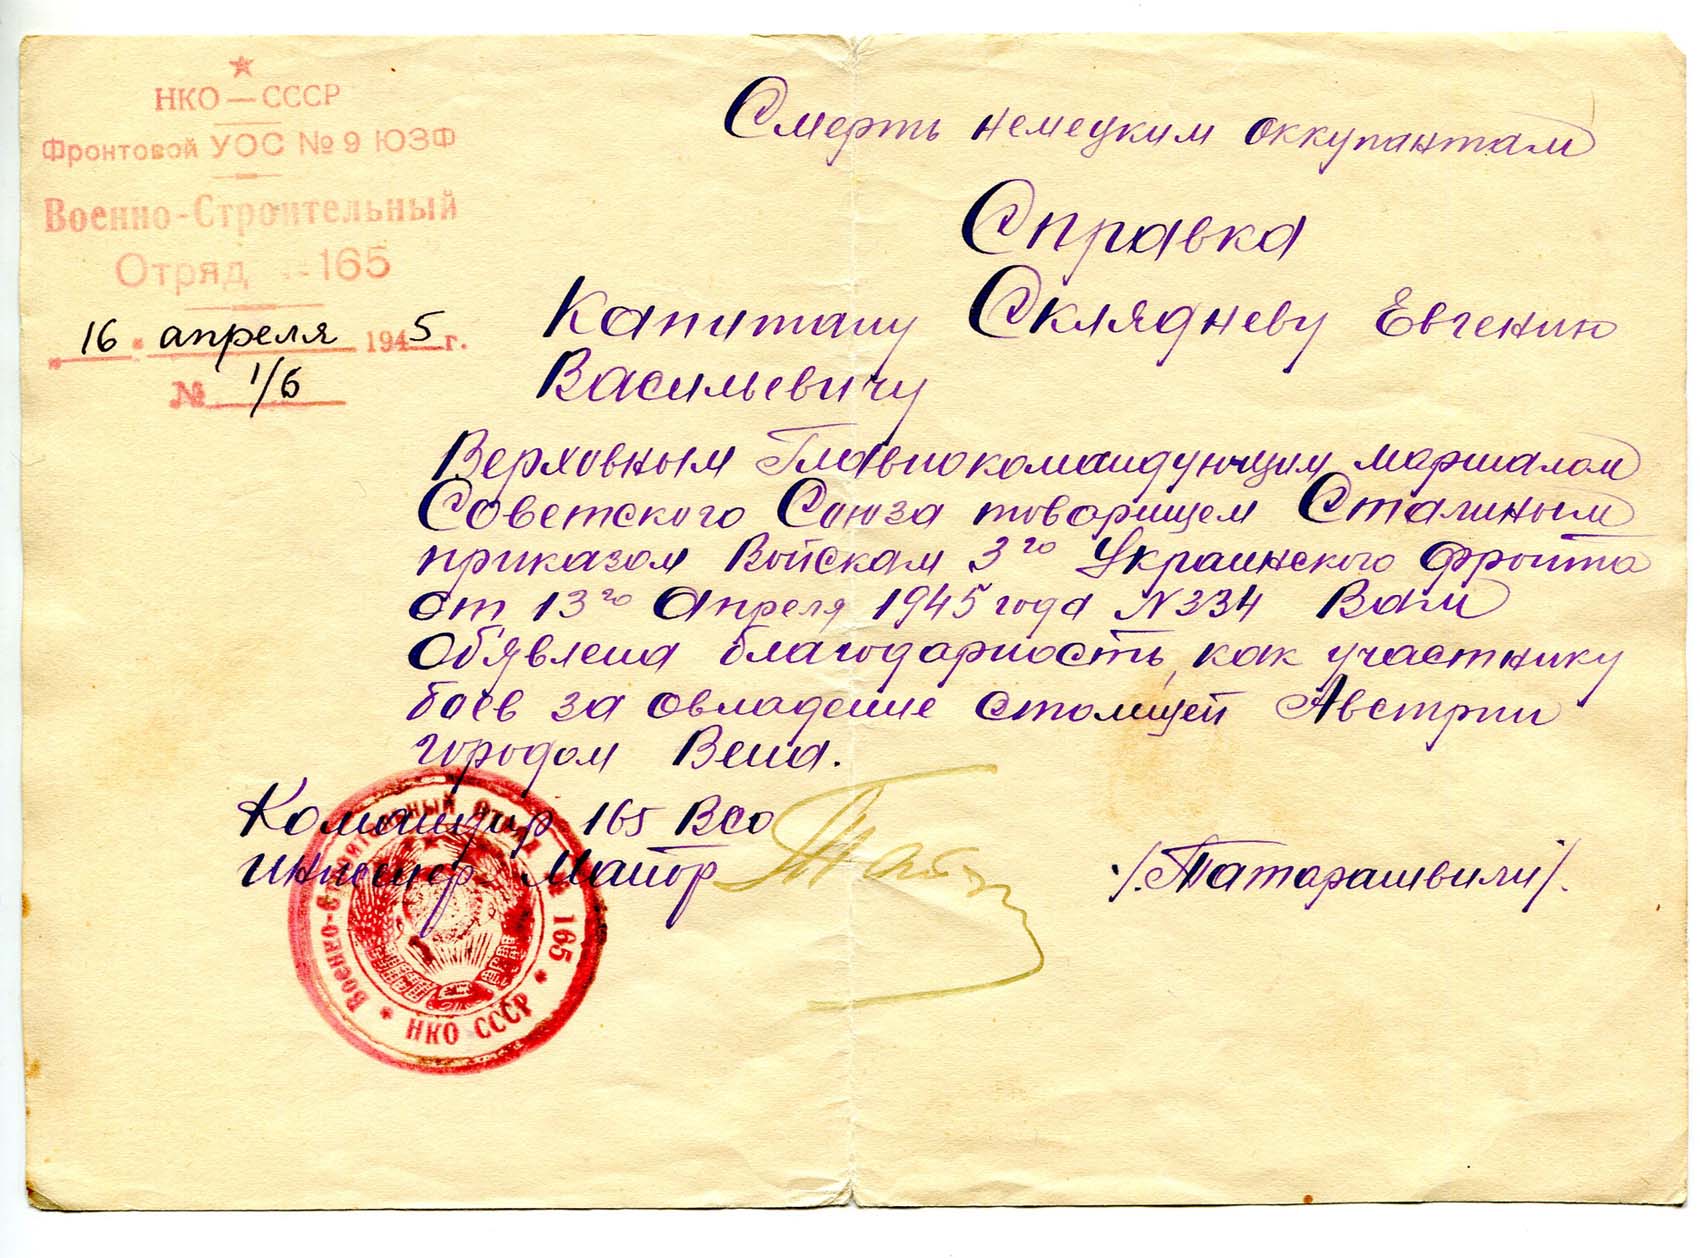 НКО — СССР
Фронтовой УОС № 9 ЮЗФ
Военно-Строительный
Отряд 165
„16" апреля 1945 г.
№ 1/6
Смерть немецким оккупантам
Справка
Капитану Складневу Евгению
Васильевичу
Верховным Главнокомандующим маршалом
Советского Союза товарищем Сталиным
приказом Войскам 3го Украинского фронта
от 13го Апреля 1945 года N 334 Вам
Об'явлена благодарность, как участнику
боев за овладение столицей Австрии
городом Вена.
Командир 165 ВСО
инженер Майор /Татарашвили/.
Военно-Строительный Отряд № 165
* НКО СССР *